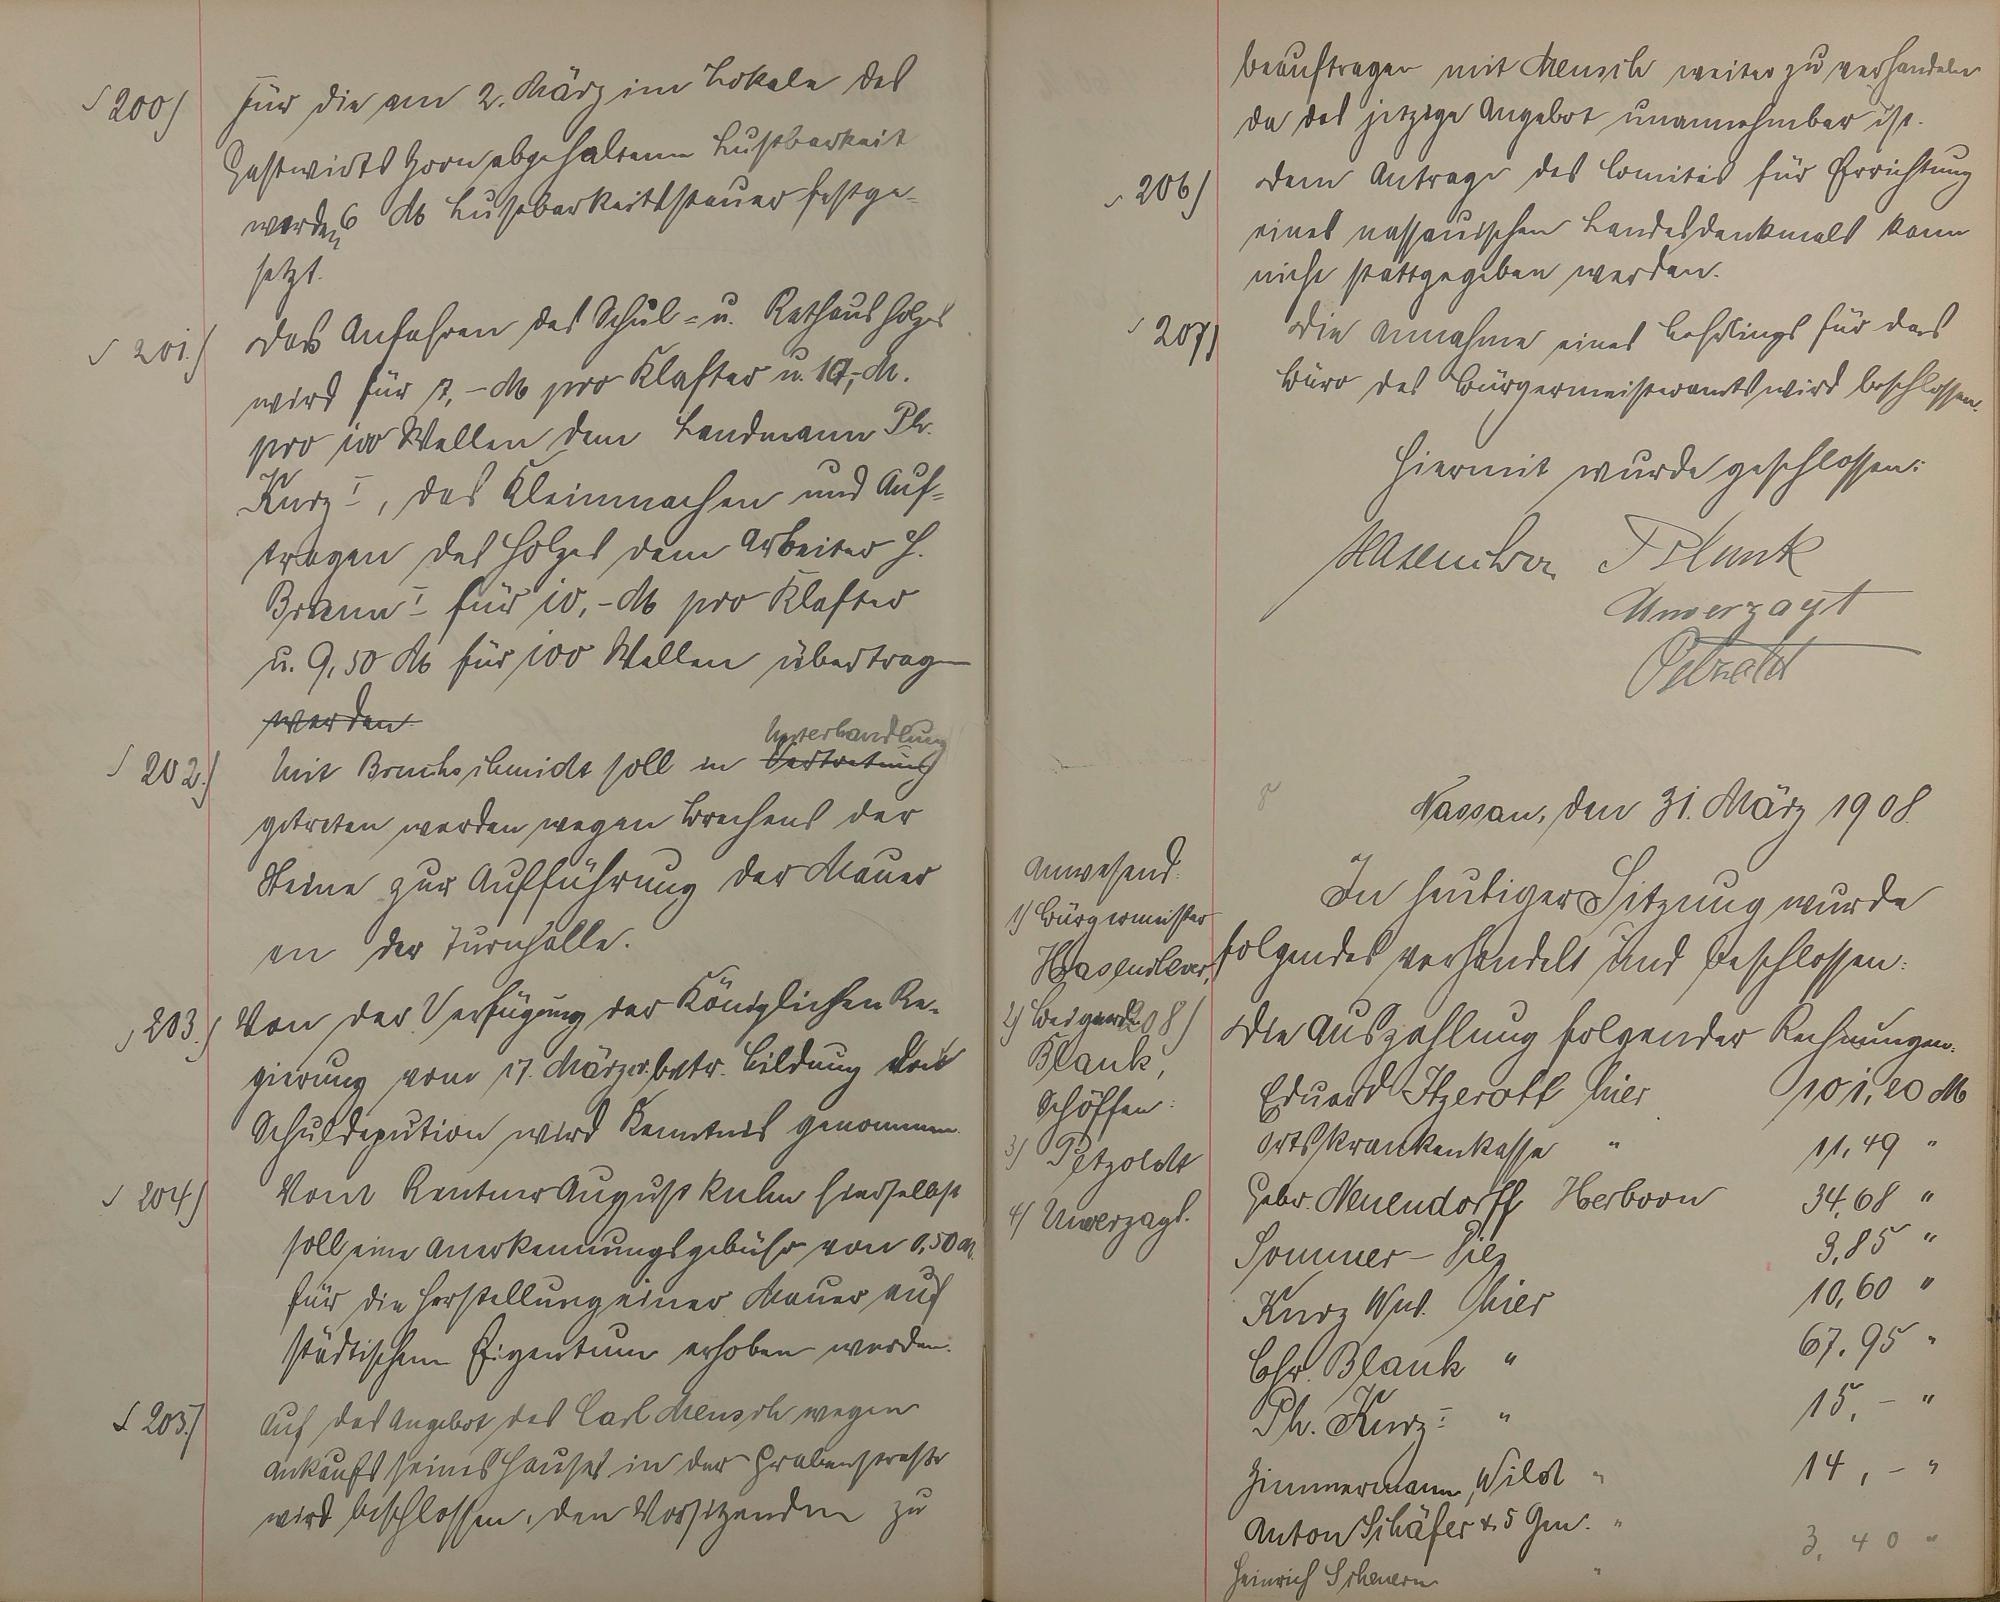 § 200) Für die am 2. März im Lokale des
Gastwirts Horn abgehaltene Lustbarkeit
werden 6 M Lustbarkeitssteuer festge-
setzt.
§ 201.) Das Anfahren des Schul- u. Rathausholzes
wird für 7,- M pro Klafter u. 10,- M.
pro 100 Wellen dem Landmann Ph.
Kurz I, das Kleinmachen und Auf-
tragen des Holzes dem Arbeiter H.
Braun I für 10,- M pro Klafter
u. 9,50 M für 100 Wellen übertragen
werden
Unterhandlung
§ 202.) Mit Bruchschmidt soll in Vertretung
getreten werden wegen Brechens der
Steine zur Aufführung der Mauer
an der Turnhalle.
§ 203.) Von der Verfügung der Königlichen Re-
gierung vom 17. März cr. betr. Bildung der
Schuldepution wird Kenntnis genommen.
§ 204) Vom Rentner August Kuhn hierselbst
soll eine Anerkennungsgebühr von 0,50 M.
für die Herstellung einer Mauer auf
städtischem Eigentum erhoben werden.
§ 205.) Auf das Angebot des Carl Mensch wegen
Ankaufs seines Hauses in der Grabenstraße
wird beschlossen, den Vorsitzenden zu
beauftragen mit Mensch weiter zu verhandeln
da das jetzige Angebot unannehmbar ist.
§ 206) Dem Antrage des Comités für Errichtung
eines nassauischen Landesdenkmals kann
nicht stattgegeben werden.
§ 207) Die Annahme eines Lehrlings für das
Büro des Bürgermeisteramts wird beschlossen.
Hiermit wurde geschlossen:
Hasenclever Blank
Unverzagt
Petzoldt
Nassau, den 31. März 1908.
Anwesend:
1) Bürgermeister
Hasenclever,
2) Beigeord.
Blank,
Schöffen:
3) Petzoldt
4) Unverzagt.
In heutiger Sitzung wurde
folgendes verhandelt und beschlossen:
208) Die Auszahlung folgender Rechnungen:
Eduard Itzerott hier 101,20 M
Ortskrankenkasse " 11,49 "
Gebr. Neuendorff Herborn 34,68 "
Sommer - Diez 3,85 "
Kurz Ww. hier 10,60 "
Chr. Blank " 67,95 "
Ph. Kurz I " 15,- "
Zimmermann, Wild " 14,- "
Anton Schäfer & 5 Gen. " 3,40 "
Heinrich Scheuern "